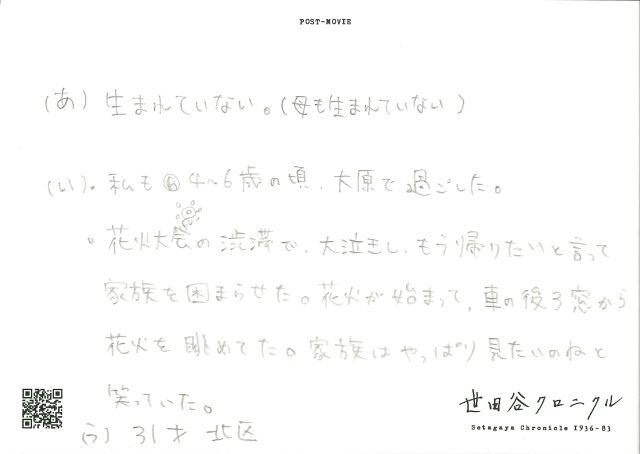 POST-MOVIE
(あ) 生まれていない。(母も生まれていない)
(い)。私も 4~6歳の頃、大原で過ごした。
。花火大会の渋滞で、大泣きし、もう帰りたいと言って
家族を困まらせた。花火が始まって、車の後ろ窓から
花火を眺めてた。家族はやっぱり見たいのねと
笑っていた。
う) 31才 北区
世田谷クロニクル
Setagaya Chronicle 1936-83